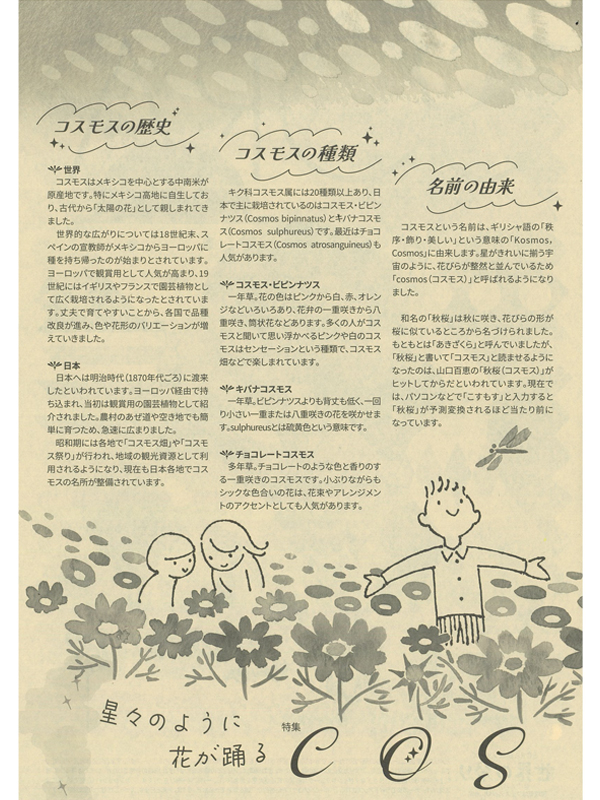 コスモスの歴史
世界
コスモスはメキシコを中心とする中南米が
原産地です。特にメキシコ高地に自生してお
り、古代から「太陽の花」として親しまれてき
ました。
世界的な広がりについては18世紀末、ス
ペインの宣教師がメキシコからヨーロッパに
種を持ち帰ったのが始まりとされています。
ヨーロッパで観賞用として人気が高まり、19
世紀にはイギリスやフランスで園芸植物とし
て広く栽培されるようになったとされていま
す。丈夫で育てやすいことから、各国で品種
改良が進み、色や花形のバリエーションが増
えていきました。
日本
日本へは明治時代（1870年代ごろ）に渡来
したといわれています。ヨーロッパ経由で持
ち込まれ、当初は観賞用の園芸植物として紹
介されました。農村のあぜ道や空き地でも簡
単に育つため、急速に広まりました。
昭和期には各地で「コスモス畑」や「コスモ
ス祭り」が行われ、地域の観光資源として利
用されるようになり、現在も日本各地でコス
モスの名所が整備されています。
コスモスの種類
キク科コスモス属には20種類以上あり、日
本で主に栽培されているのはコスモス・ビピン
ナツス（Cosmos bipinnatus）とキバナコスモ
ス（Cosmos sulphureus）です。最近はチョコ
レートコスモス（Cosmos atrosanguineus）も
人気があります。
コスモス・ビピンナツス
一年草。花の色はピンクから白、赤、オレン
ジなどいろいろあり、花弁の一重咲きから八
重咲き、筒状花などあります。多くの人がコス
モスと聞いて思い浮かべるピンクや白のコス
モスはセンセーションという種類で、コスモス
畑などで楽しまれています。
キバナコスモス
一年草。ビピンナツスよりも背丈も低く、一回
り小さい一重または八重咲きの花を咲かせま
す。sulphureusとは硫黄色という意味です。
チョコレートコスモス
多年草。チョコレートのような色と香りのす
る一重咲きのコスモスです。小ぶりながらも
シックな色合いの花は、花束やアレンジメン
トのアクセントとしても人気があります。
名前の由来
コスモスという名前は、ギリシャ語の「秩
序・飾り・美しい」という意味の「Kosmos，
Cosmos」に由来します。星がきれいに揃う宇
宙のように、花びらが整然と並んでいるため
「cosmos（コスモス）」と呼ばれるようになり
ました。
和名の「秋桜」は秋に咲き、花びらの形が
桜に似ているところから名づけられました。
もともとは「あきざくら」と呼んでいましたが、
「秋桜」と書いて「コスモス」と読ませるように
なったのは、山口百恵の「秋桜（コスモス）」が
ヒットしてからだといわれています。現在で
は、パソコンなどで「こすもす」と入力すると
「秋桜」が予測変換されるほど当たり前に
なっています。
星々のように
花が踊る
特集
COS